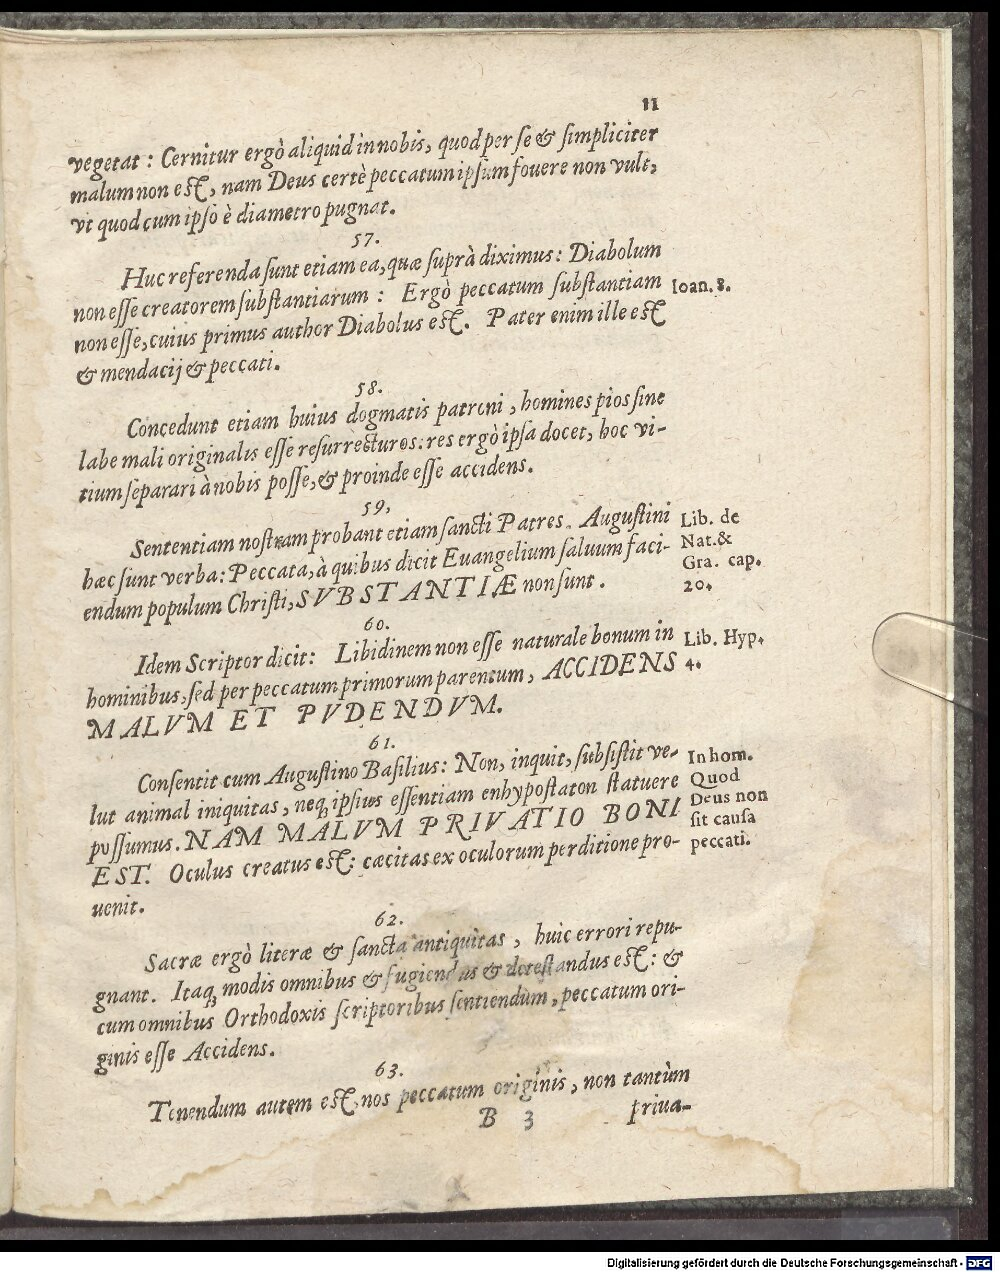 11
vegetat : Cernitur ergò aliquid in nobis, quod per se & simpliciter
malum non est, nam Deus certè peccatum ipsum fouere non vult,
vt quod cum ipso è diametro pugnat.
57.
Huc referenda sunt etiam ea, quæ suprà diximus: Diabolum
non esse creatorem substantiarum : Ergò peccatum substantiam
Ioan. 8.
non esse, cuius primus author Diabolus est. Pater enim ille est
& mendacij & peccati.
58.
Concedunt etiam huius dogmatis patroni, homines pios sine
labe mali originalis esse resurrecturos: res ergò ipsa docet, hoc vi-
tium separari à nobis posse, & proinde esse accidens.
59,
Sententiam nostram probant etiam sancti Patres. Augustini
hæc sunt verba: Peccata, à quibus dicit Euangelium saluum faci-
endum populum Christi, SVBSTANTIÆ non sunt.
Lib. de
Nat. &
Gra. cap.
20.
60.
Idem Scriptor dicit: Libidinem non esse naturale bonum in
hominibus, sed per peccatum primorum parentum, ACCIDENS
MALVM ET PVDENDVM.
Lib. Hyp.
4.
61.
Consentit cum Augustino Basilius: Non, inquit, subsistit ve-
lut animal iniquitas, neq; ipsius essentiam enhypostaton statuere
possumus. NAM MALVM PRIVATIO BONI
EST. Oculus creatus est: cæcitas ex oculorum perditione pro-
uenit.
In hom.
Quod
Deus non
sit causa
peccati.
62.
Sacræ ergò literæ & sancta antiquitas, huic errori repu-
gnant. Itaq; modis omnibus & fugiendus & detestandus est: &
cum omnibus Orthodoxis scriptoribus sentiendùm, peccatum ori-
ginis esse Accidens.
63.
Tenendum autem est, nos peccatum originis, non tantùm
B 3
priua-
Digitalisierung gefördert durch die Deutsche Forschungsgemeinschaft - DFG